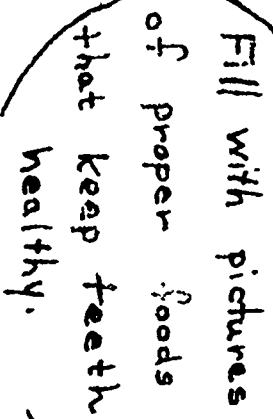 Fill with pictures
of proper foods
that keep teeth
healthy.